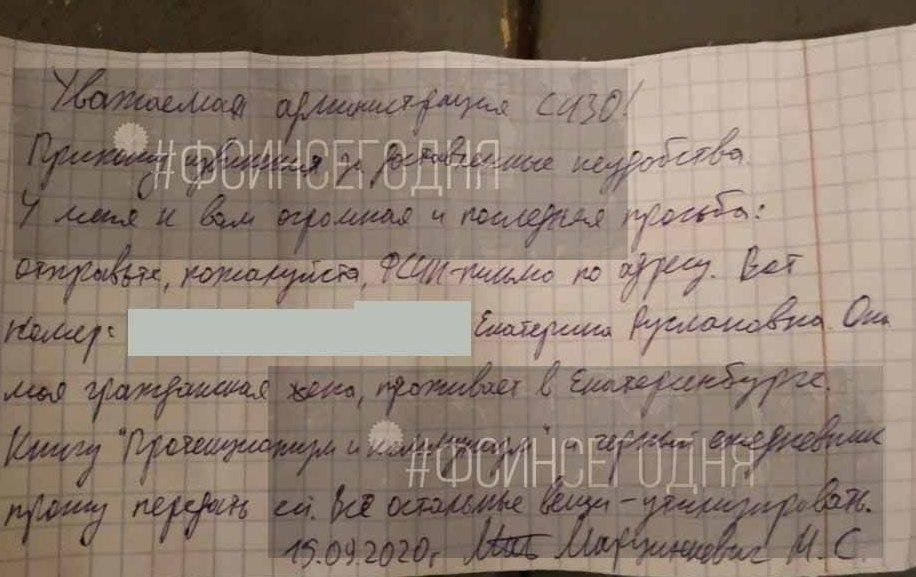 Уважаемая администрация СИЗО!
Приношу извинения за доставленные неудобства
#ФСИНСЕГОДНЯ
У меня к вам огромная и последняя просьба:
отправьте, пожалуйста, ФСИН-письмо по адресу. Вот
номер: Екатерина Руслановна. Она
моя гражданская жена, проживает в Екатеринбурге.
Книгу "Протекционизм и коммунизм" и черный ежедневник
#ФСИНСЕГОДНЯ
прошу передать ей. Все остальные вещи - утилизировать.
15.09.2020г Марцинкевич М.С.